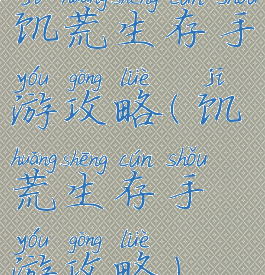 jī huāng shēng cún shǒu
饥荒生存手
yóu gōng lüè jī
游攻略(饥
huāng shēng cún shǒu
荒生存手
yóu gōng lüè
游攻略)